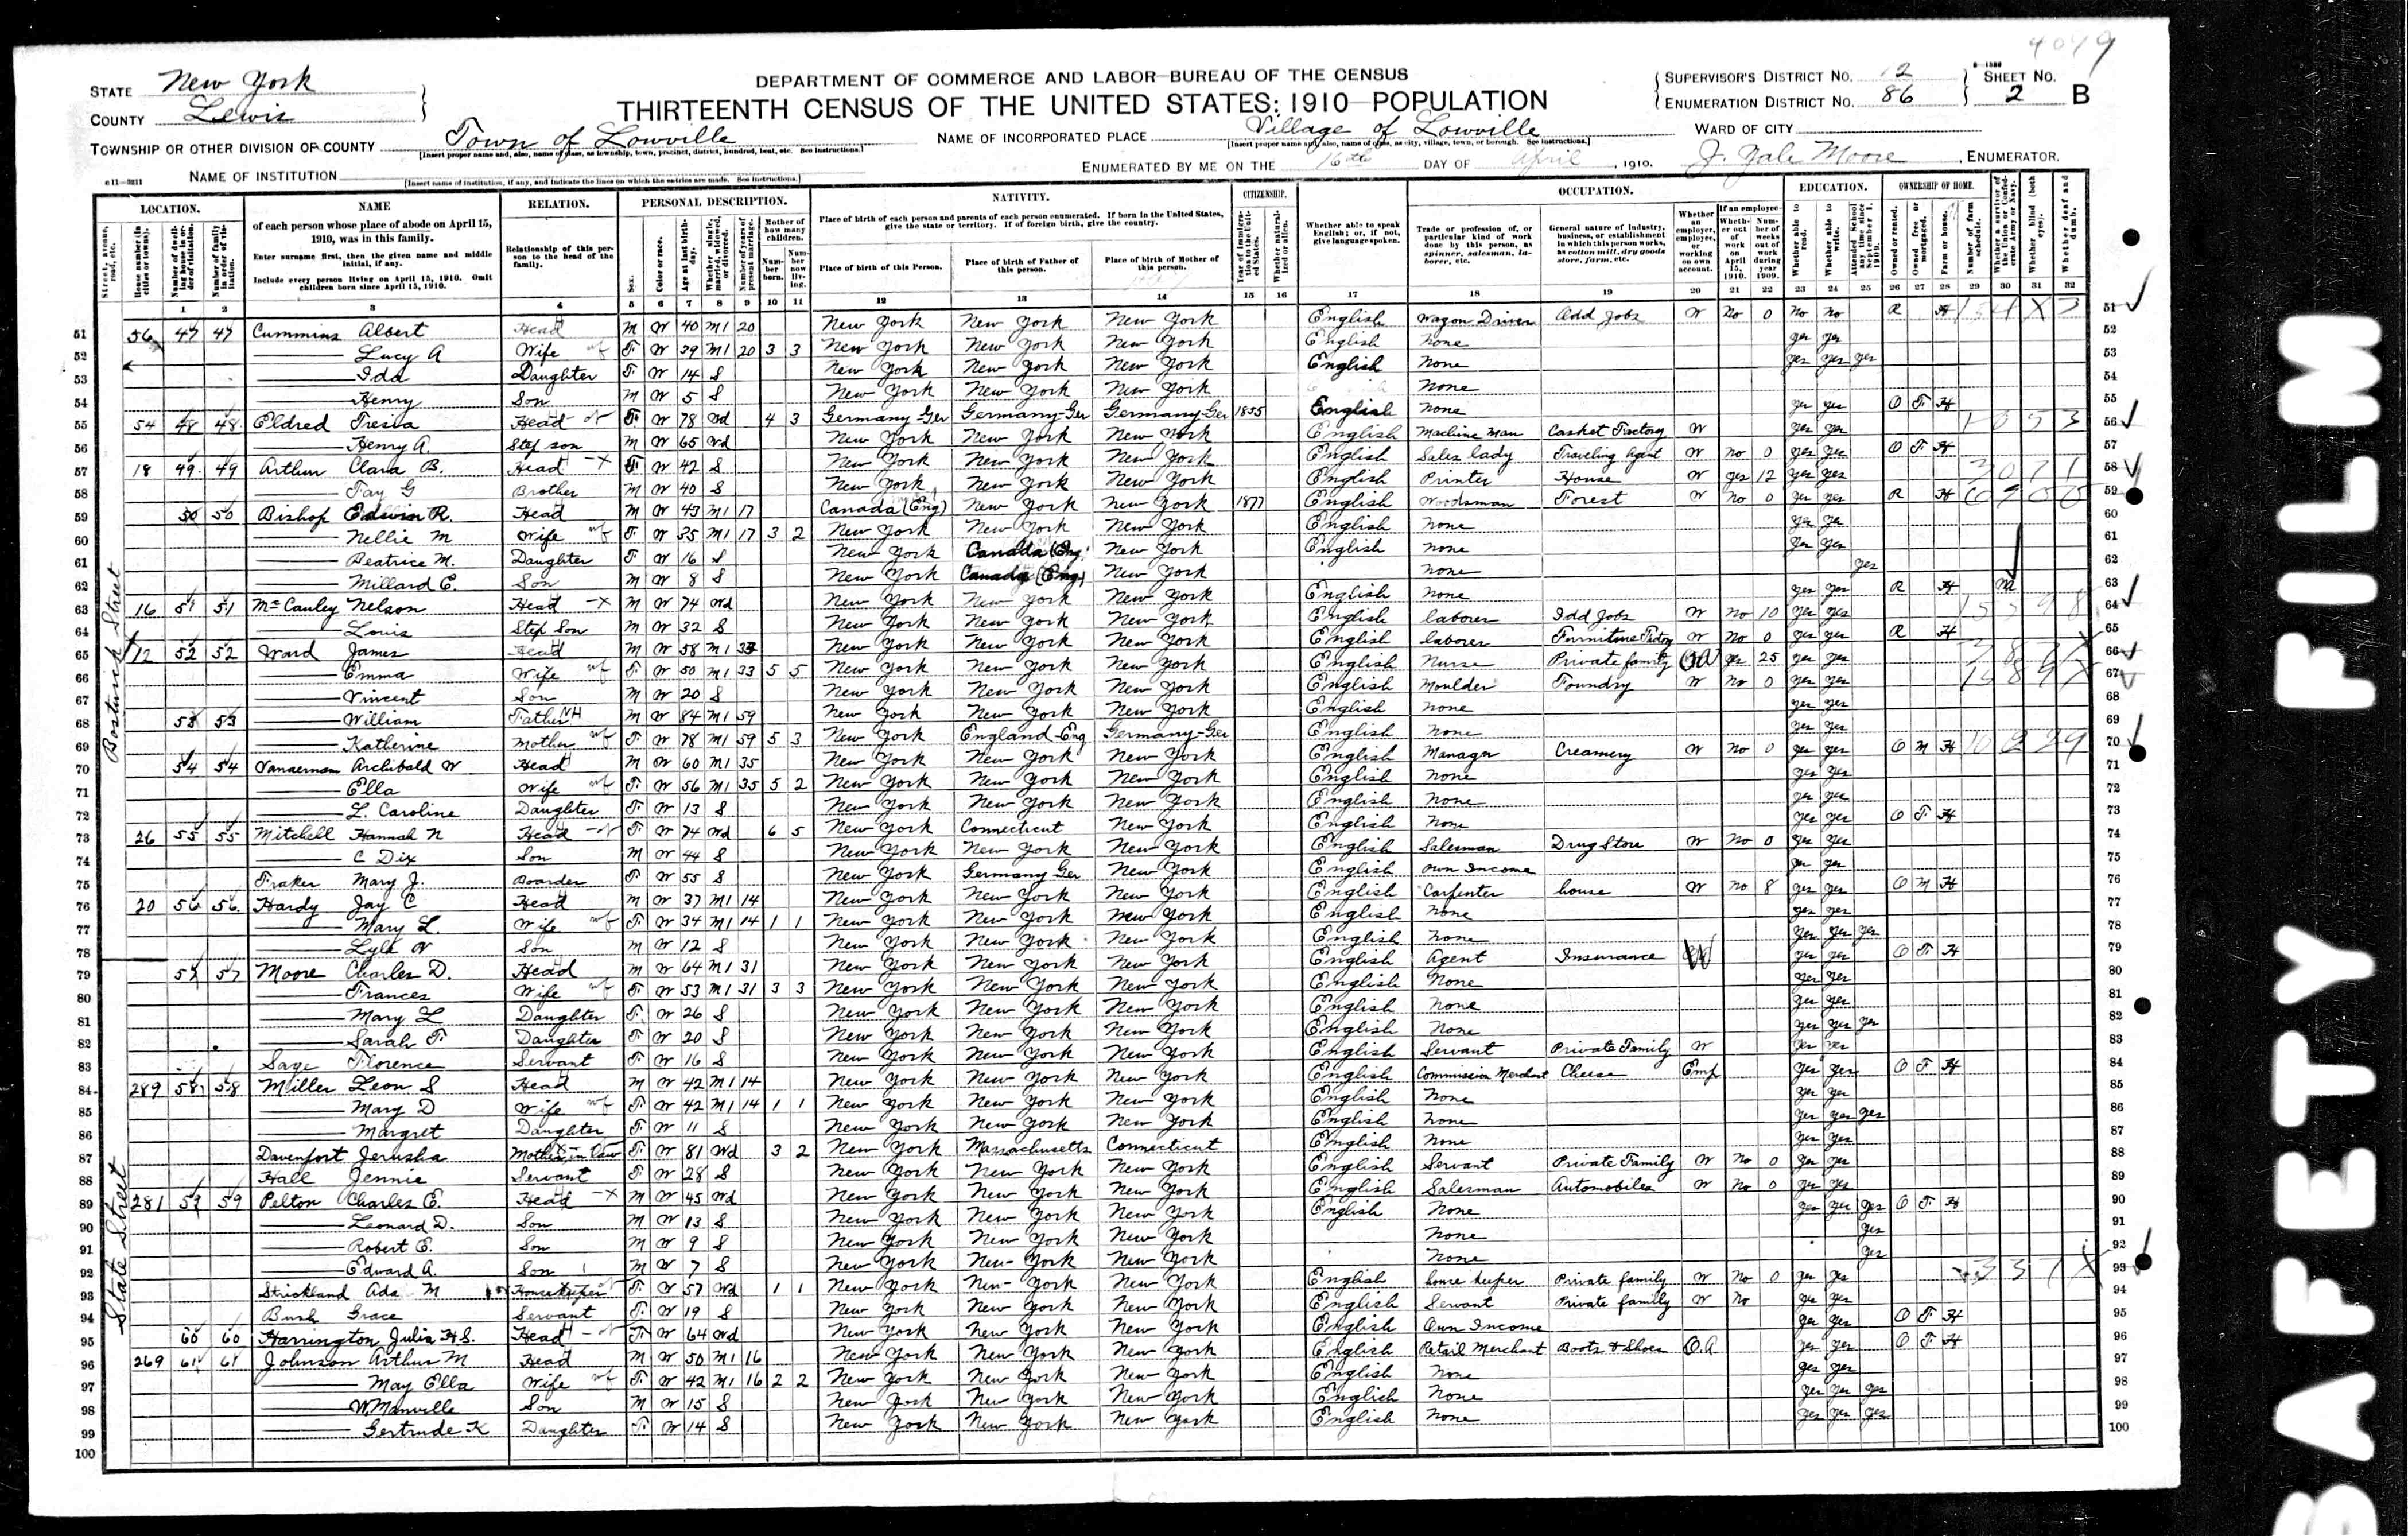 4079
DEPARTMENT OF COMMERCE AND LABOR—BUREAU OF THE CENSUS
THIRTEENTH CENSUS OF THE UNITED STATES: 1910—POPULATION
STATE New York
COUNTY Lewis
TOWNSHIP OR OTHER DIVISION OF COUNTY Town of Lowville
[Insert proper name and, also, name of class, as township, town, precinct, district, hundred, beat, etc. See instructions.]
NAME OF INSTITUTION
[Insert name of institution, if any, and indicate the lines on which the entries are made. See instructions.]
NAME OF INCORPORATED PLACE Village of Lowville
[Insert proper name and, also, name of class, as city, village, town, or borough. See instructions.]
ENUMERATED BY ME ON THE 16th DAY OF April, 1910. J. Yale Moore, ENUMERATOR.
SUPERVISOR'S DISTRICT NO. 12
ENUMERATION DISTRICT NO. 86
SHEET NO. 2 B
WARD OF CITY
LOCATION. NAME RELATION. PERSONAL DESCRIPTION. NATIVITY. CITIZENSHIP. OCCUPATION. EDUCATION. OWNERSHIP OF HOME.
of each person whose place of abode on April 15, 1910, was in this family.
Enter surname first, then the given name and middle initial, if any.
Include every person living on April 15, 1910. Omit children born since April 15, 1910.
Relationship of this person to the head of the family.
Place of birth of each person and parents of each person enumerated. If born in the United States, give the state or territory. If of foreign birth, give the country.
Place of birth of this Person. Place of birth of Father of this person. Place of birth of Mother of this person.
Whether able to speak English; or, if not, give language spoken.
Trade or profession of, or particular kind of work done by this person, as spinner, salesman, laborer, etc.
General nature of industry, business, or establishment in which this person works, as cotton mill, dry goods store, farm, etc.
Bostwick Street
51 56 47 47 Cummins Albert Head M W 40 M1 20 New York New York New York English Wagon Driver Odd Jobs W No 0 No No R H
52 Lucy A Wife F W 39 M1 20 3 3 New York New York New York English None yes yes
53 Ida Daughter F W 14 S New York New York New York English None yes yes yes
54 Henry Son M W 5 S New York New York New York None
55 54 48 48 Eldred Tresia Head F W 78 Wd 4 3 Germany-Ger Germany-Ger Germany-Ger 1855 English None yes yes O F H
56 Henry A. Step son M W 65 Wd New York New York New York English Machine Man Casket Factory W yes yes
57 18 49 49 Arthur Clara B. Head F W 42 S New York New York New York English Sales lady Traveling Agent W No 0 yes yes O F H
58 Fay G Brother M W 40 S New York New York New York English Printer House W yes 12 yes yes
59 50 50 Bishop Edwin R. Head M W 43 M1 17 Canada (Eng) New York New York 1877 English Woodsman Forest W No 0 yes yes R H
60 Nellie M Wife F W 35 M1 17 3 2 New York New York New York English None yes yes
61 Beatrice M. Daughter F W 16 S New York Canada (Eng) New York English None yes yes
62 Millard E. Son M W 8 S New York Canada (Eng) New York None yes
63 16 51 51 McCauley Nelson Head M W 74 Wd New York New York New York English None yes yes R H
64 Louis Step Son M W 32 S New York New York New York English laborer Odd Jobs W No 10 yes yes
65 12 52 52 Ward James Head M W 58 M1 33 New York New York New York English laborer Furniture Factory W No 0 yes yes R H
66 Emma Wife F W 50 M1 33 5 5 New York New York New York English Nurse Private family W yes 25 yes yes
67 Vincent Son M W 20 S New York New York New York English Moulder Foundry W No 0 yes yes
68 53 53 William Father M W 84 M1 59 New York New York New York English None yes yes
69 Katherine Mother F W 78 M1 59 5 3 New York England-Eng Germany-Ger English None yes yes
70 54 54 Archibald W Head M W 60 M1 35 New York New York New York English Manager Creamery W No 0 yes yes O M H
71 Ella Wife F W 56 M1 35 5 2 New York New York New York English None yes yes
72 L. Caroline Daughter F W 13 S New York New York New York English None yes yes
73 26 55 55 Mitchell Hannah N Head F W 74 Wd 6 5 New York Connecticut New York English None yes yes O F H
74 C Dix Son M W 44 S New York New York New York English Salesman Drug Store W No 0 yes yes
75 Fraker Mary J. Boarder F W 55 S New York Germany Ger New York English Own Income yes yes
76 20 56 56 Hardy Jay C Head M W 37 M1 14 New York New York New York English Carpenter house W No 8 yes yes O M H
77 Mary L. Wife F W 34 M1 14 1 1 New York New York New York English None yes yes
78 Lyle W Son M W 12 S New York New York New York English None yes yes yes
State Street
79 57 57 Moore Charles D. Head M W 64 M1 31 New York New York New York English Agent Insurance W yes yes O F H
80 Frances Wife F W 53 M1 31 3 3 New York New York New York English None yes yes
81 Mary L Daughter F W 26 S New York New York New York English None yes yes
82 Sarah F Daughter F W 20 S New York New York New York English None yes yes yes
83 Sage Florence Servant F W 16 S New York New York New York English Servant Private Family W yes yes
84 289 58 58 Miller Leon S Head M W 42 M1 14 New York New York New York English Commission Merchant Cheese Emp yes yes O F H
85 Mary D Wife F W 42 M1 14 1 1 New York New York New York English None yes yes
86 Margret Daughter F W 11 S New York New York New York English None yes yes yes
87 Davenport Jerusha Mother in Law F W 81 Wd 3 2 New York Massachusetts Connecticut English None yes yes
88 Hall Jennie Servant F W 28 S New York New York New York English Servant Private Family W No 0 yes yes
89 281 59 59 Pelton Charles E. Head M W 45 Wd New York New York New York English Salesman Automobiles W No 0 yes yes
90 Leonard D. Son M W 13 S New York New York New York English None yes yes yes O F H
91 Robert E. Son M W 9 S New York New York New York None yes
92 Edward A. Son M W 7 S New York New York New York None yes
93 Strickland Ada M Housekeeper F W 57 Wd 1 1 New York New York New York English house keeper Private family W No 0 yes yes
94 Bush Grace Servant F W 19 S New York New York New York English Servant Private family W No yes yes
95 60 60 Harrington Julia H S. Head F W 64 Wd New York New York New York English Own Income yes yes O F H
96 269 61 61 Johnson Arthur M Head M W 50 M1 16 New York New York New York English Retail Merchant Boots & Shoes O.A yes yes O F H
97 May Ella Wife F W 42 M1 16 2 2 New York New York New York English None yes yes
98 W. Manville Son M W 15 S New York New York New York English None yes yes yes
99 Gertrude K Daughter F W 14 S New York New York New York English None yes yes yes
100
SAFETY FILM